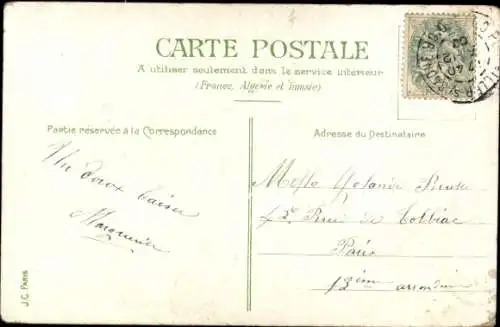 CARTE POSTALE
A utiliser seulement dans le service intérieur
(France, Algérie et Tunisie)
Partie réservée à la Correspondance
Adresse du Destinataire
Un doux baiser
Melle Yolande
Rue de Tolbiac
Paris
13ème arrondim
J.C. PARIS